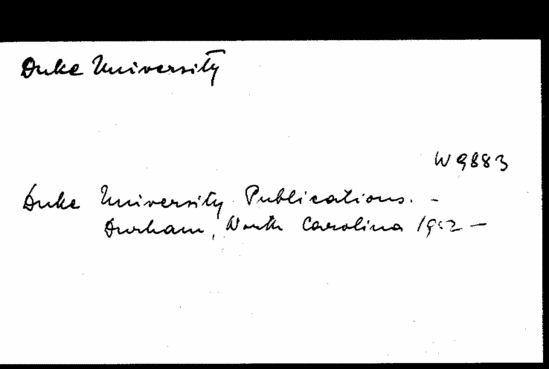 Duke University
W 9883
Duke University Publications. -
Durham, North Carolina 1952 -